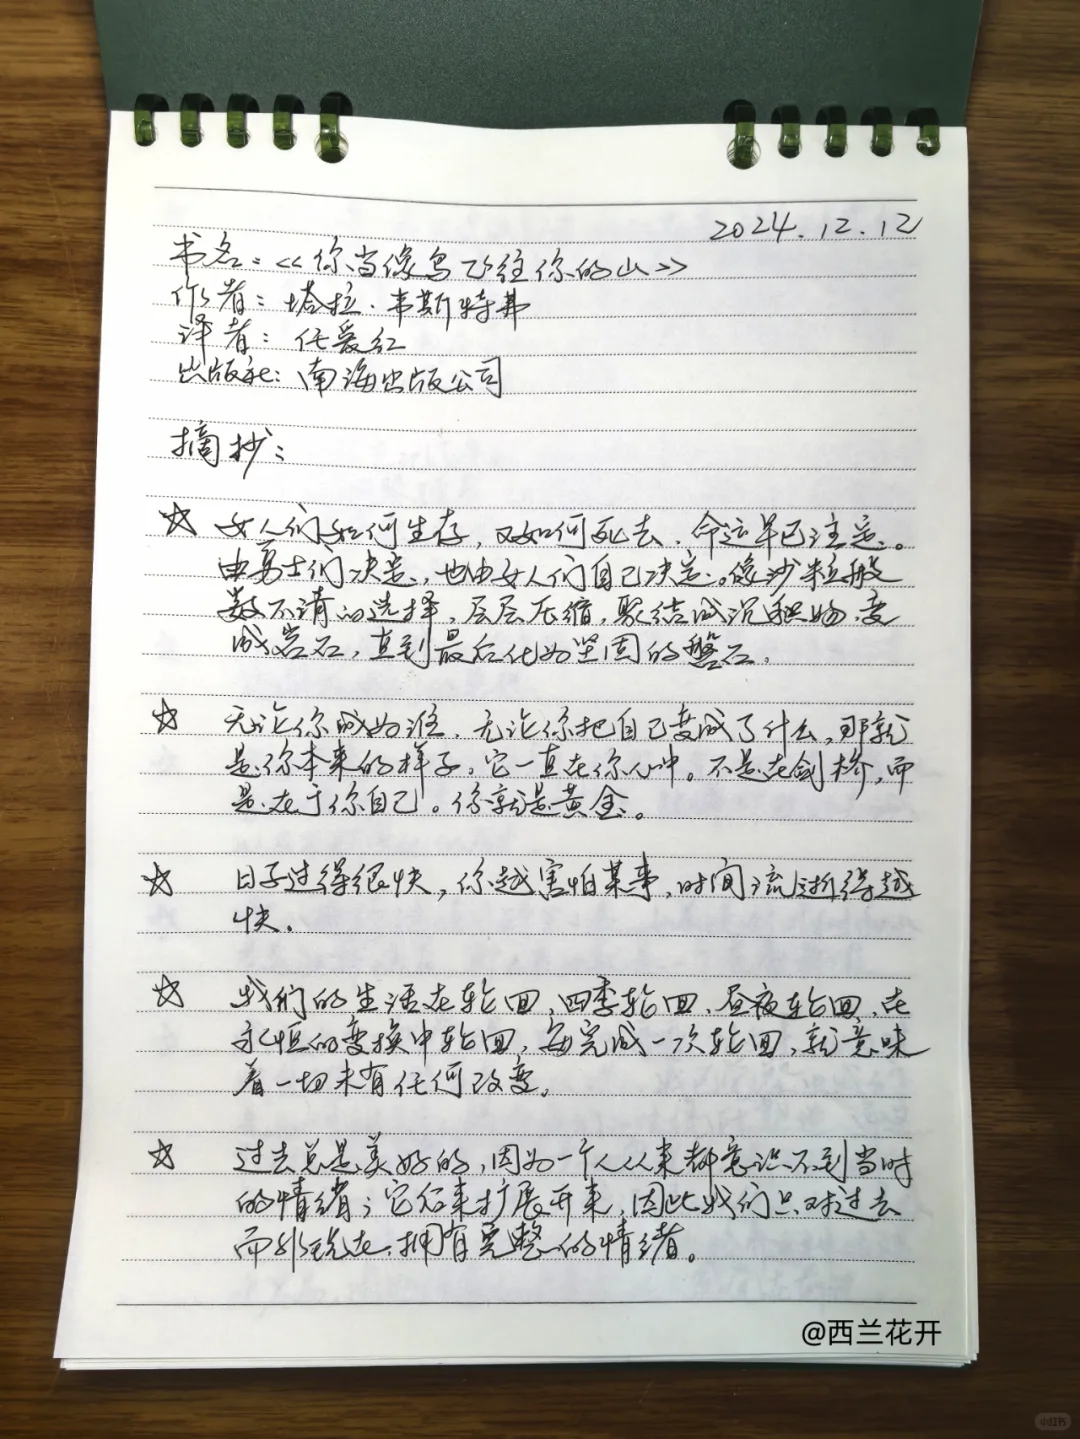 2024.12.12
书名：《你当像鸟飞往你的山》
作者：塔拉·韦斯特弗
译者：任爱红
出版社：南海出版公司
摘抄：
☆ 女人们如何生存，又如何死去，命运早已注定。
由勇士们决定，也由女人们自己决定。像沙粒般
数不清的选择，层层压缩，聚结成沉积物，变
成岩石，直到最后化为坚固的磐石。
☆ 无论你成为谁，无论你把自己变成了什么，那就
是你本来的样子，它一直在你心中。不是在剑桥，而
是在于你自己。你就是黄金。
☆ 日子过得很快，你越害怕某事，时间流逝得越
快。
☆ 我们的生活在轮回，四季轮回，昼夜轮回，在
永恒的变换中轮回，每完成一次轮回，就意味
着一切未有任何改变。
☆ 过去总是美好的，因为一个人从来都意识不到当时
的情绪；它后来扩展开来，因此我们只对过去
而非现在，拥有完整的情绪。
@西兰花开
小红书